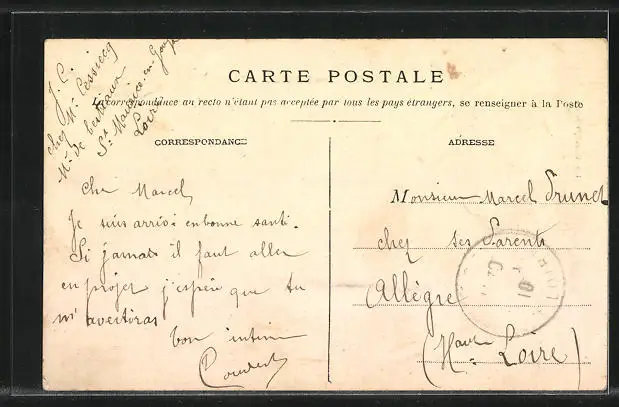 J. C.
chez Mr
Md de bestiaux
St Maurice-en-Gourgois
Loire
CARTE POSTALE
La correspondance au recto n'étant pas acceptée par tous les pays étrangers, se renseigner à la Poste
CORRESPONDANCE
ADRESSE
Cher Marcel
Je suis arrivé en bonne santé.
Si jamais il faut aller
en projet j'espère que tu
m'avertiras
ton intime
Monsieur Marcel Prunet
chez ses Parents
Allègre
(Haute Loire)